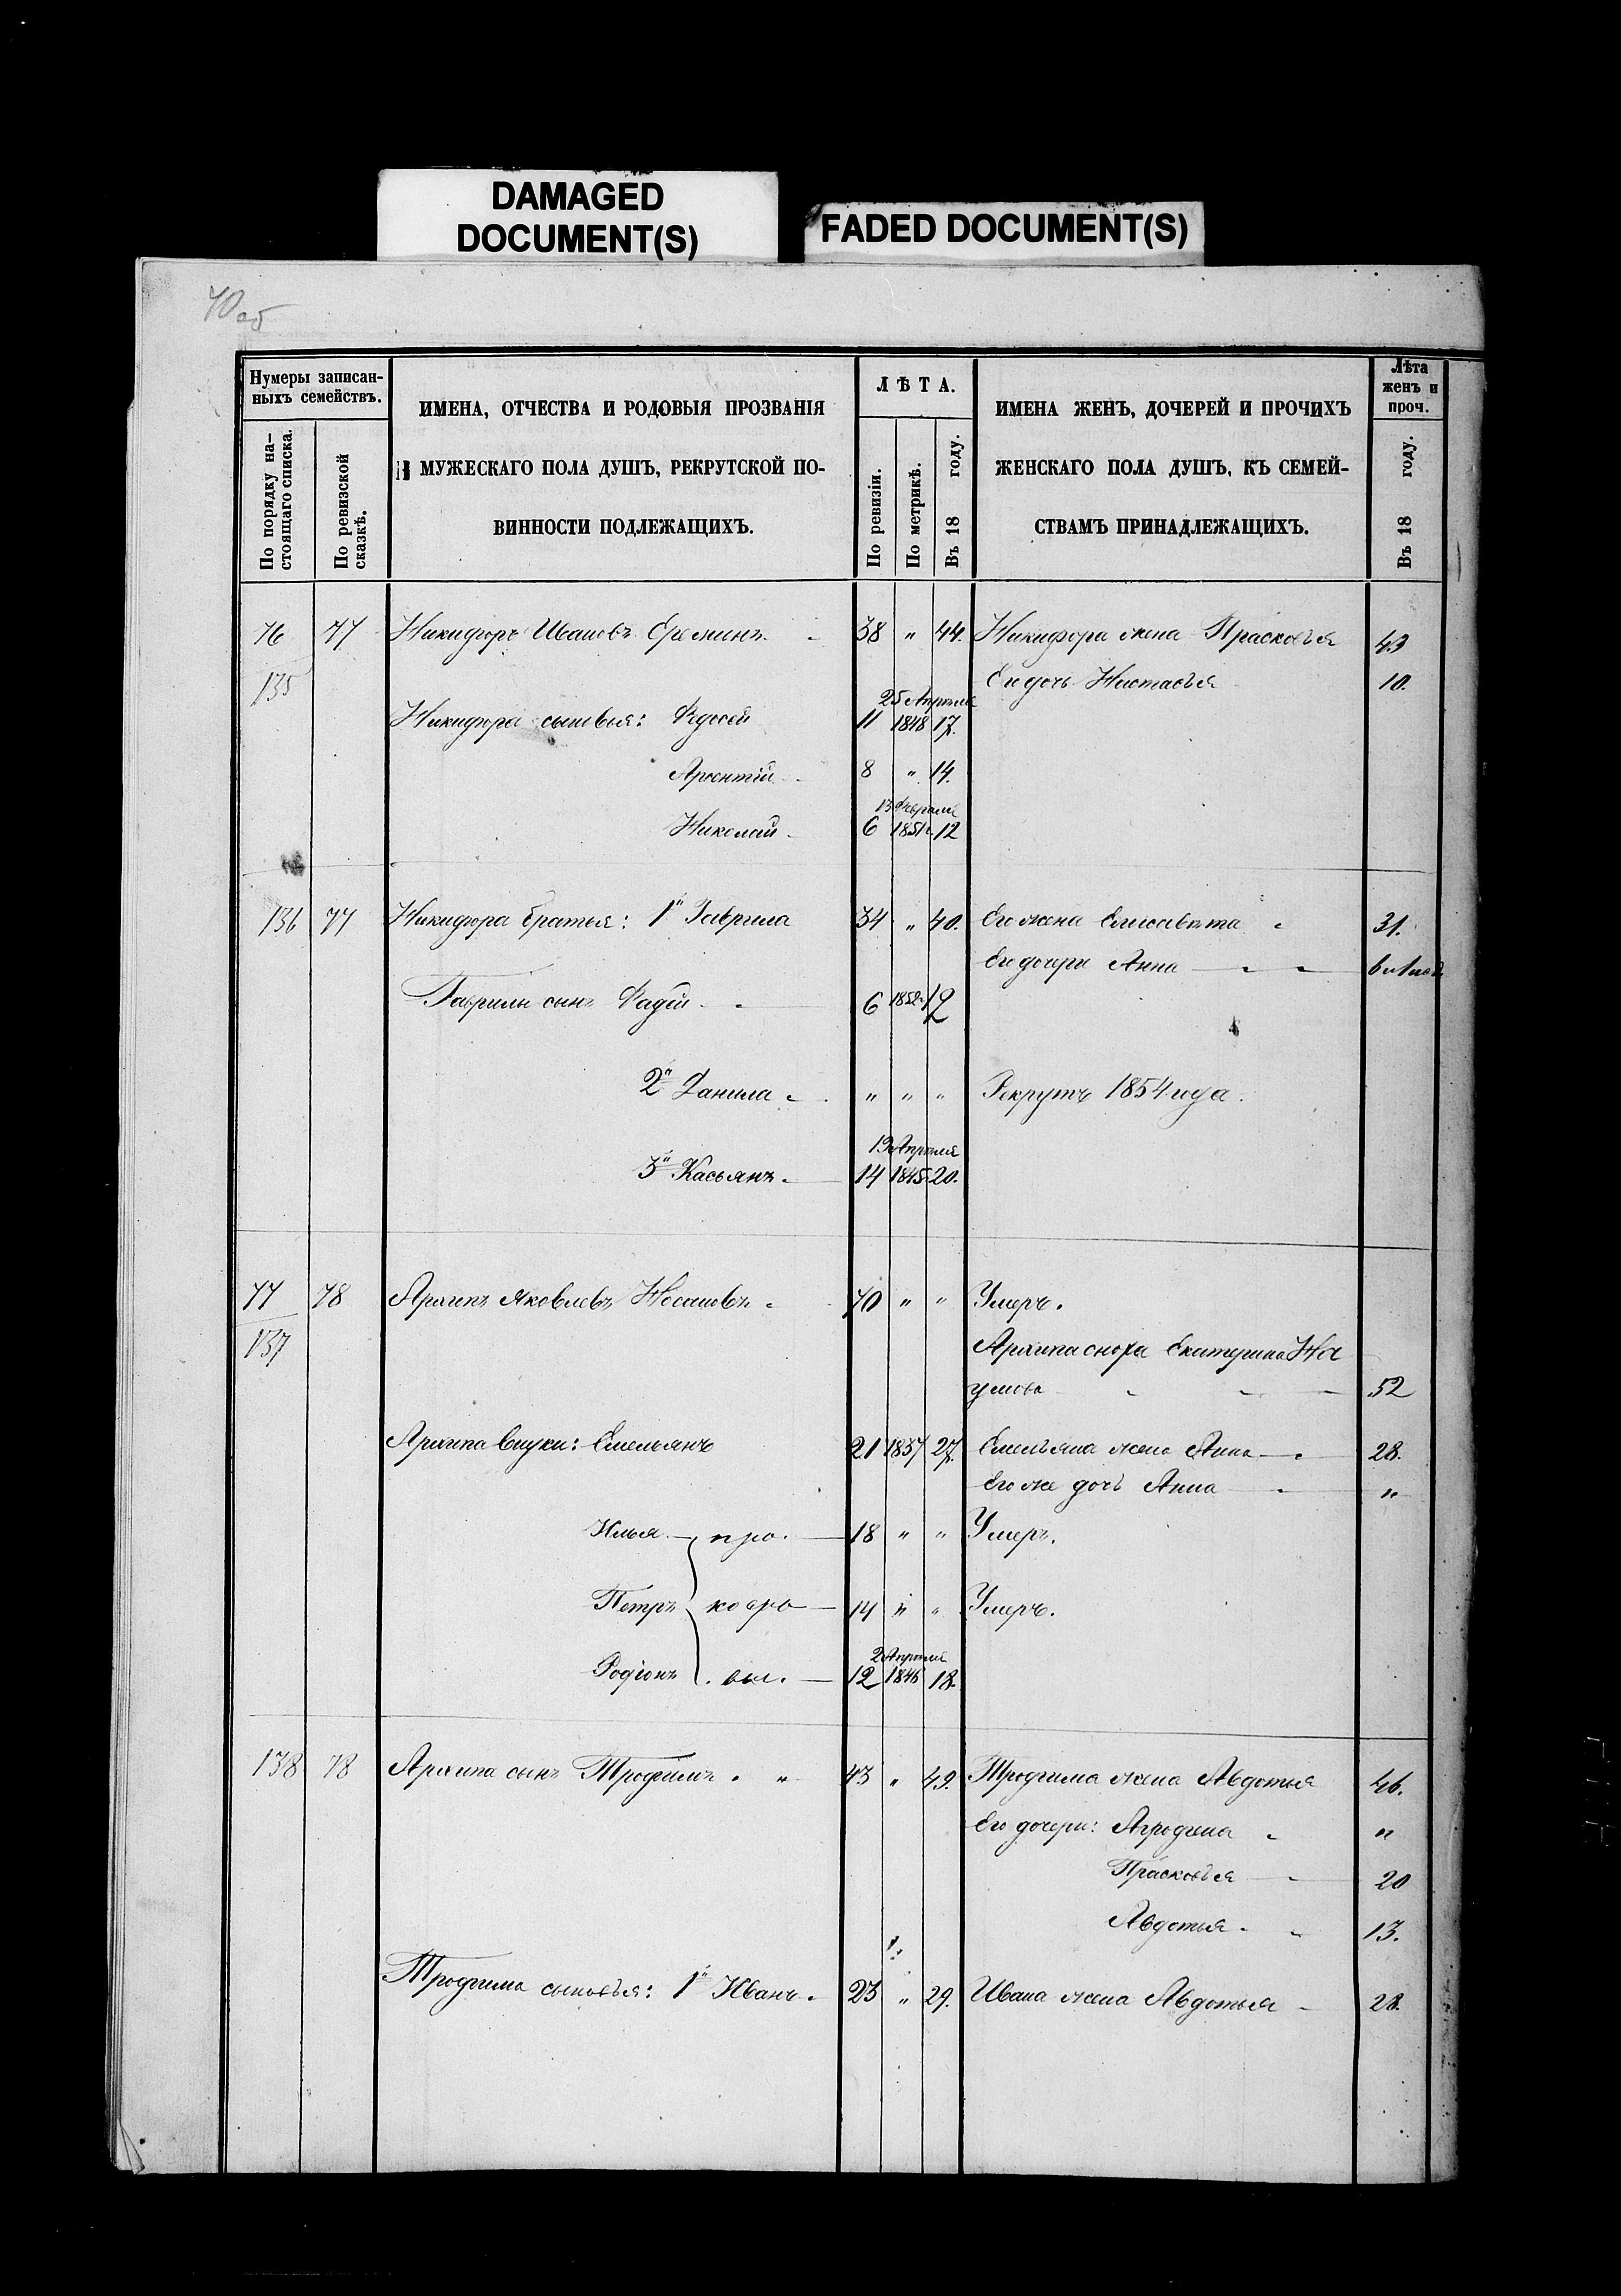 DAMAGED
DOCUMENT(S)
FADED DOCUMENT(S)
70об
Нумеры записан-
ныхъ семействъ.
По порядку на-
стоящаго списка.
По ревизской
сказкѣ.
ИМЕНА, ОТЧЕСТВА И РОДОВЫЯ ПРОЗВАНІЯ
МУЖЕСКАГО ПОЛА ДУШЪ, РЕКРУТСКОЙ ПО-
ВИННОСТИ ПОДЛЕЖАЩИХЪ.
ЛѢТА.
По ревизіи.
По метрикѣ.
Въ 18 году.
ИМЕНА ЖЕНЪ, ДОЧЕРЕЙ И ПРОЧИХЪ
ЖЕНСКАГО ПОЛА ДУШЪ, КЪ СЕМЕЙ-
СТВАМЪ ПРИНАДЛЕЖАЩИХЪ.
Лѣта
женъ и
проч.
Въ 18 году.
76 77 Никифоръ Ивановъ Ереминъ 38 " 44. Никифора жена Прасковья 43
135 Ея дочь Настасья 10.
25 Апрѣля
Никифора сыновья: Федосей 11 1848 17.
Арсентій 8 " 14.
13 Февраля
Николай 6 1851 12
136 77 Никифора братья: 1й Гаврила 34 " 40. Его жена Елисавета 31.
Его дочери Анна
Гаврилы сынъ Фадѣй 6 1852 12
2й Данила " " " Рекрутъ 1854 года.
19 Апрѣля
3й Касьянъ 14 1845 20.
77 78 Архипъ Яковлевъ Носановъ 70 " " Умеръ.
137 Архипа сноха Екатерина На
умова 52
Архипа внуки: Емельянъ 21 1837 27. Емельяна жена Анна 28.
Его же дочь Анна "
Илья про. 18 " " Умеръ.
Петръ 14 " " Умеръ.
2 Апрѣля
Родіонъ 12 1846 18.
138 78 Архипа сынъ Трофимъ 43 " 49. Трофима жена Авдотья 46.
Его дочери: Агрофена "
Прасковья 20
Авдотья 13.
Трофима сыновья: 1й Иванъ 23 " 29. Ивана жена Авдотья 28.